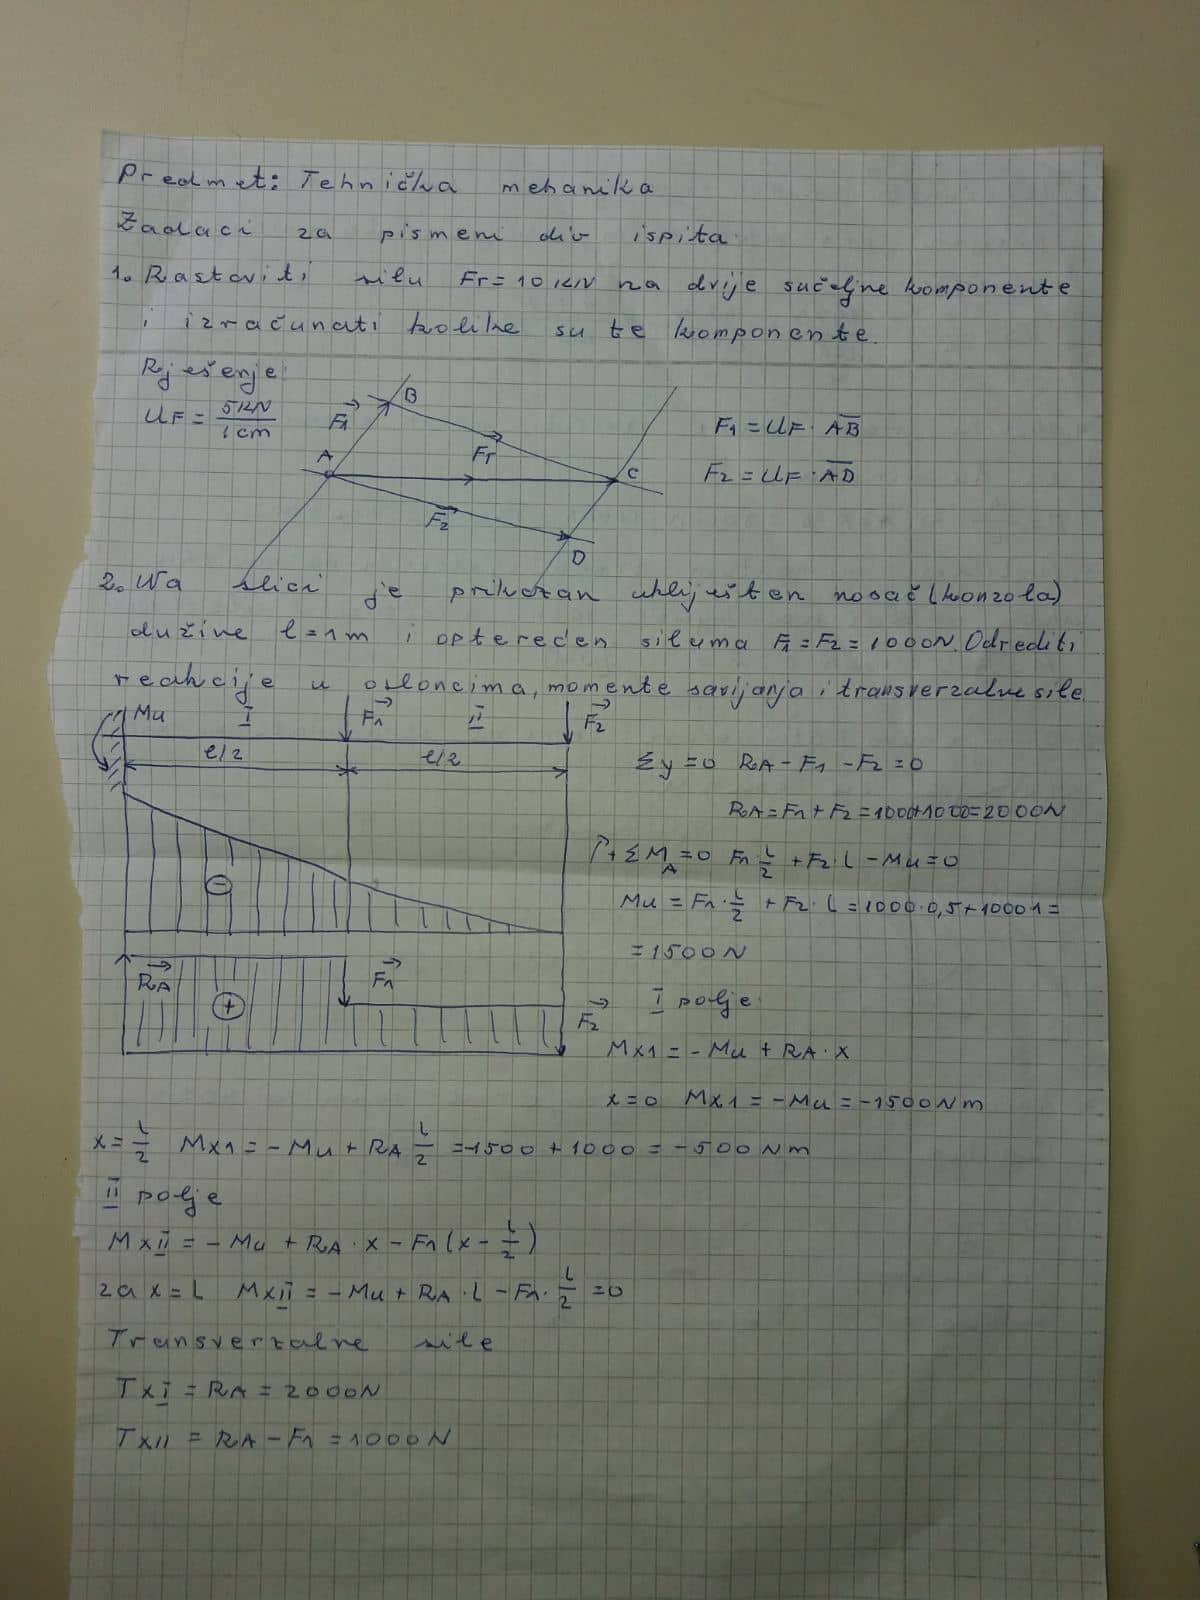 Predmet: Tehnička mehanika
Zadaci za pismeni dio ispita
1. Rastaviti silu Fr = 10 KN na dvije sučeljne komponente
i izračunati kolike su te komponente.
Rješenje:
UF = 5KN / 1cm
F1
B
A
Fr
C
F2
D
F1 = UF · AB
F2 = UF · AD
2. Na slici je prikazan uklješten nosač (konzola)
dužine l = 1m i opterećen silama F1 = F2 = 1000N. Odrediti
reakcije u osloncima, momente savijanja i transverzalne sile.
Mu I F1 II F2
l/2 l/2
Σy = 0 RA - F1 - F2 = 0
RA = F1 + F2 = 1000+1000 = 2000N
+ΣMA = 0 F1 L/2 + F2 · L - Mu = 0
Mu = F1 · L/2 + F2 · L = 1000 · 0,5 + 1000 1 =
= 1500N
-
RA F1
+
F2
I polje
Mx1 = - Mu + RA · x
x = 0 Mx1 = - Mu = -1500Nm
x = L/2 Mx1 = - Mu + RA L/2 = -1500 + 1000 = -500 Nm
II polje
MxII = - Mu + RA · x - F1 (x - L/2)
za x = L MxII = - Mu + RA · L - F1 · L/2 = 0
Transverzalne sile
TxI = RA = 2000N
TxII = RA - F1 = 1000N